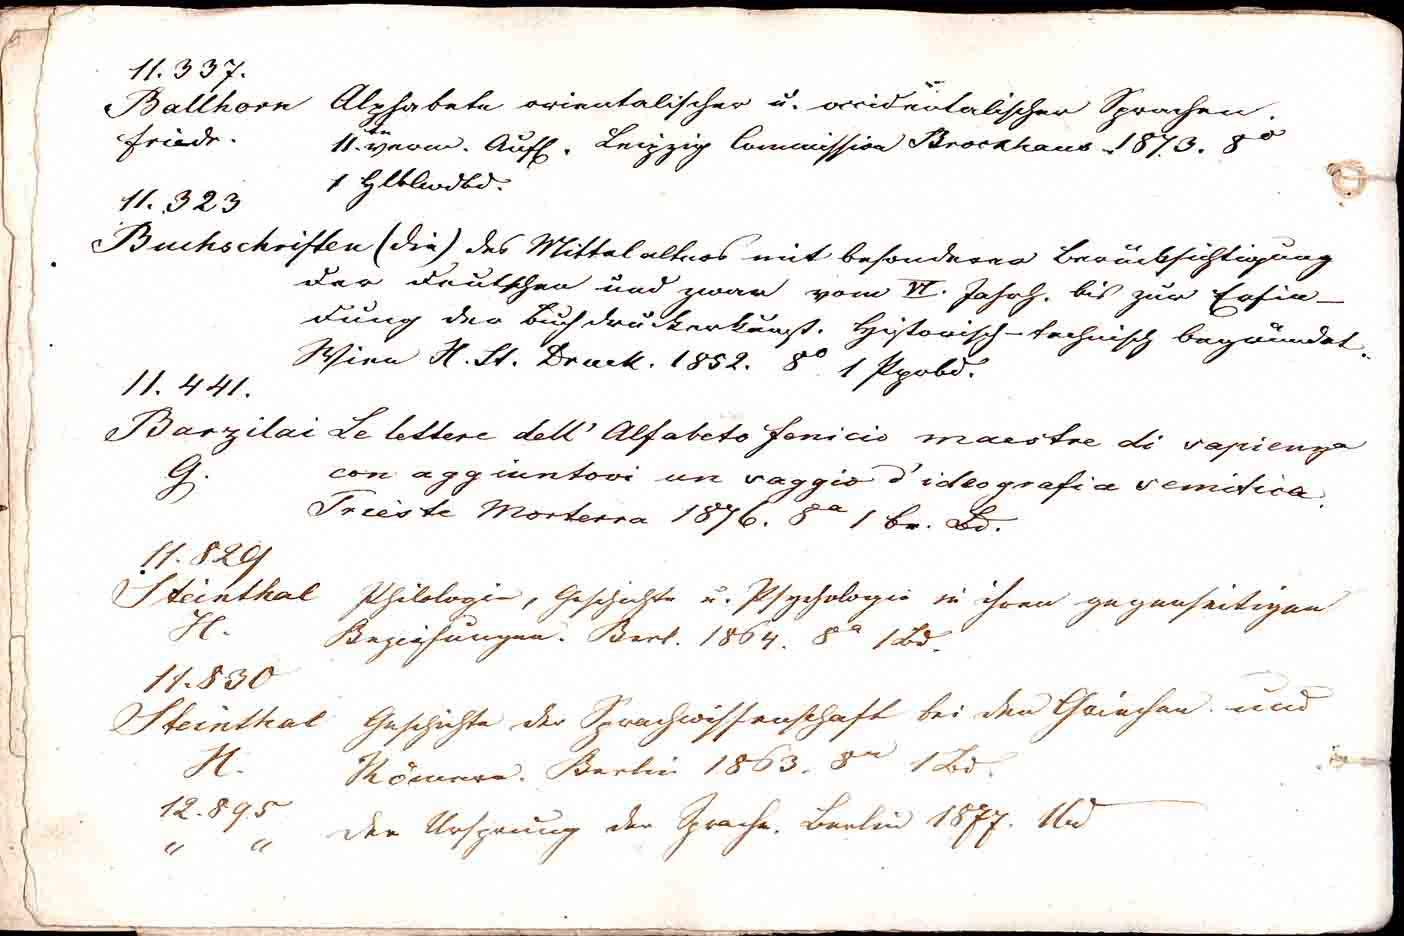 11.337.
Ballhorn Alphabete orientalischer u. occidentalischer Sprachen.
Friedr. 11.te verm. Aufl. Leipzig Commission Brockhaus 1873. 8o
1 Hlblwdbd.
11.323
Buchschriften (die) des Mittelalters mit besonderer Berücksichtigung
der deutschen und zwar vom VI. Jahrh. bis zur Erfin-
dung der Buchdruckerkunst. Historisch-technisch begründet.
Wien H. St. Druck. 1852. 8o 1 Ppbd.
11.441.
Barzilai Le lettere dell' Alfabeto fenicio maestre di sapienza
G. con aggiuntovi un saggio d'ideografia semitica.
Trieste Morterra 1876. 8a 1 br. Bd.
11.829
Steinthal Philologie, Geschichte u. Psychologie in ihren gegenseitigen
H. Beziehungen. Berl. 1864. 8a 1 Bd.
11.830
Steinthal Geschichte der Sprachwissenschaft bei den Griechen und
H. Römern. Berlin 1863. 8a 1 Bd.
12.895
" " Der Ursprung der Sprache. Berlin 1877. 1 bd